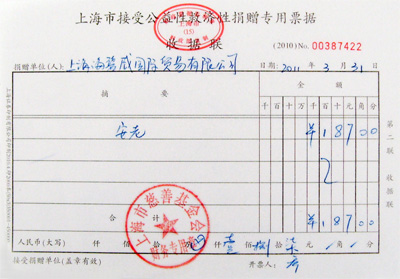 上海市接受公益性救济性捐赠专用票据
(15)
收据联 (2010)No. 00387422
捐赠单位(人): 上海海磐威国际贸易有限公司 日期: 2011年3月31日
摘要 金额
千百十万千百十元角分
安老 ¥18700
合计 ¥18700
人民币(大写) 仟 佰 拾 万 壹仟 捌佰 柒拾 元 角 分
接受捐赠单位(盖章有效) 开票人:
第二联 收据联
上海市慈善基金会
财务专用